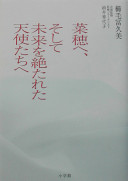 菜穂へ、
そして
未来を絶たれた
天使たちへ
稲毛富久美
小学館